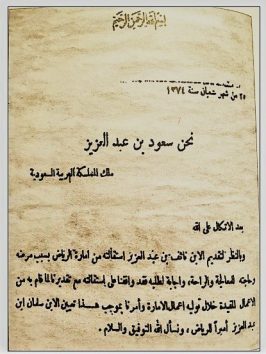 بسم الله الرحمن الرحيم
٢٥ من شهر شعبان سنة ١٣٧٤
نحن سعود بن عبد العزيز
ملك المملكة العربية السعودية
بعد الاتكال على الله
وبالنظر لتقديم الابن نائف بن عبد العزيز استقالته من امارة الرياض بسبب مرضه
وحاجته للمعالجة والراحة، واجابة لطلبه فقد وافقنا على استقالته مع تقديرنا لما قام به من
الاعمال المفيدة خلال توليه اعمال الامارة وأمرنا بموجب هذا تعيين الابن سلمان ابن
عبد العزيز أميراً للرياض، ونسأل الله التوفيق والسلام.